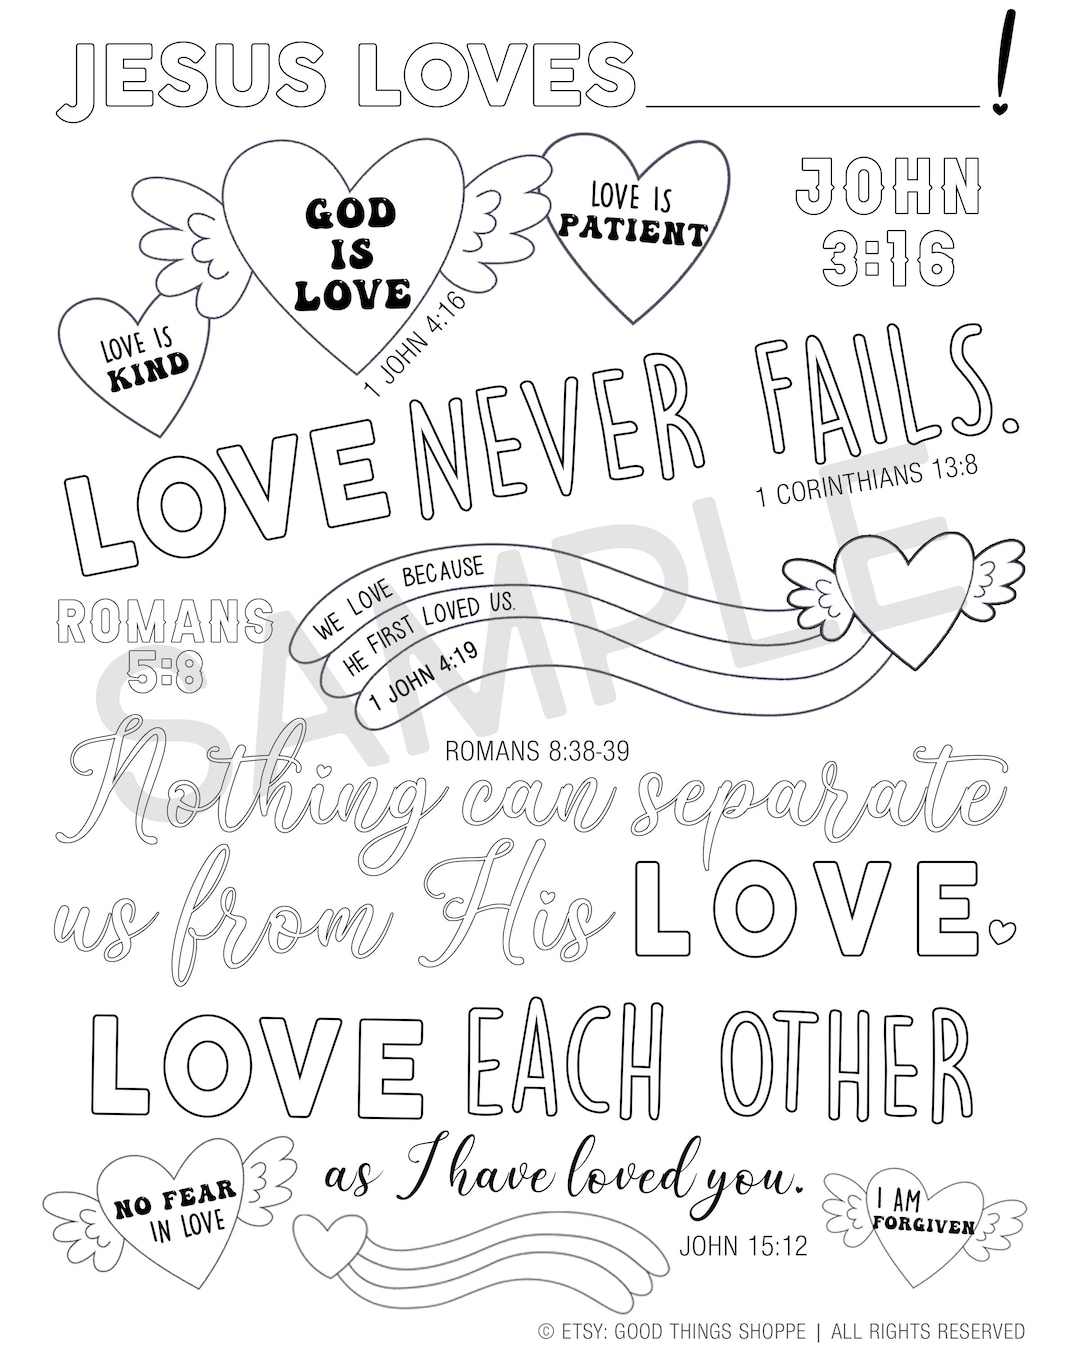 JESUS LOVES ____________!
GOD
IS
LOVE
1 JOHN 4:16
LOVE IS
PATIENT
JOHN
3:16
LOVE IS
KIND
LOVE NEVER FAILS.
1 CORINTHIANS 13:8
SAMPLE
WE LOVE BECAUSE
HE FIRST LOVED US.
1 JOHN 4:19
ROMANS
5:8
ROMANS 8:38-39
Nothing can separate
us from His LOVE.
LOVE EACH OTHER
as I have loved you.
JOHN 15:12
NO FEAR
IN LOVE
I AM
FORGIVEN
© ETSY: GOOD THINGS SHOPPE | ALL RIGHTS RESERVED